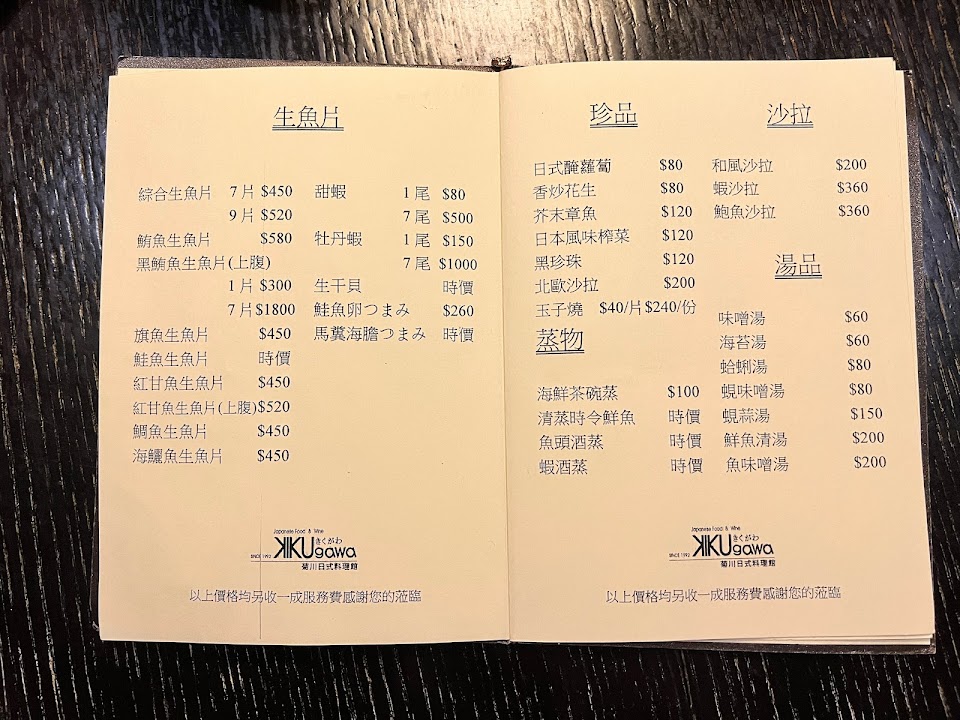 生魚片
綜合生魚片 7片 $450
9片 $520
鮪魚生魚片 $580
黑鮪魚生魚片(上腹)
1片 $300
7片 $1800
旗魚生魚片 $450
鮭魚生魚片 時價
紅甘魚生魚片 $450
紅甘魚生魚片(上腹) $520
鯛魚生魚片 $450
海鱺魚生魚片 $450
甜蝦 1尾 $80
7尾 $500
牡丹蝦 1尾 $150
7尾 $1000
生干貝 時價
鮭魚卵つまみ $260
馬糞海膽つまみ 時價
Japanese Food & Wine
KIKUgawa きくがわ
SINCE 1992
菊川日式料理館
以上價格均另收一成服務費感謝您的蒞臨
珍品
日式醃蘿蔔 $80
香炒花生 $80
芥末章魚 $120
日本風味榨菜 $120
黑珍珠 $120
北歐沙拉 $200
玉子燒 $40/片 $240/份
蒸物
海鮮茶碗蒸 $100
清蒸時令鮮魚 時價
魚頭酒蒸 時價
蝦酒蒸 時價
沙拉
和風沙拉 $200
蝦沙拉 $360
鮑魚沙拉 $360
湯品
味噌湯 $60
海苔湯 $60
蛤蜊湯 $80
蜆味噌湯 $80
蜆蒜湯 $150
鮮魚清湯 $200
魚味噌湯 $200
Japanese Food & Wine
KIKUgawa きくがわ
SINCE 1992
菊川日式料理館
以上價格均另收一成服務費感謝您的蒞臨